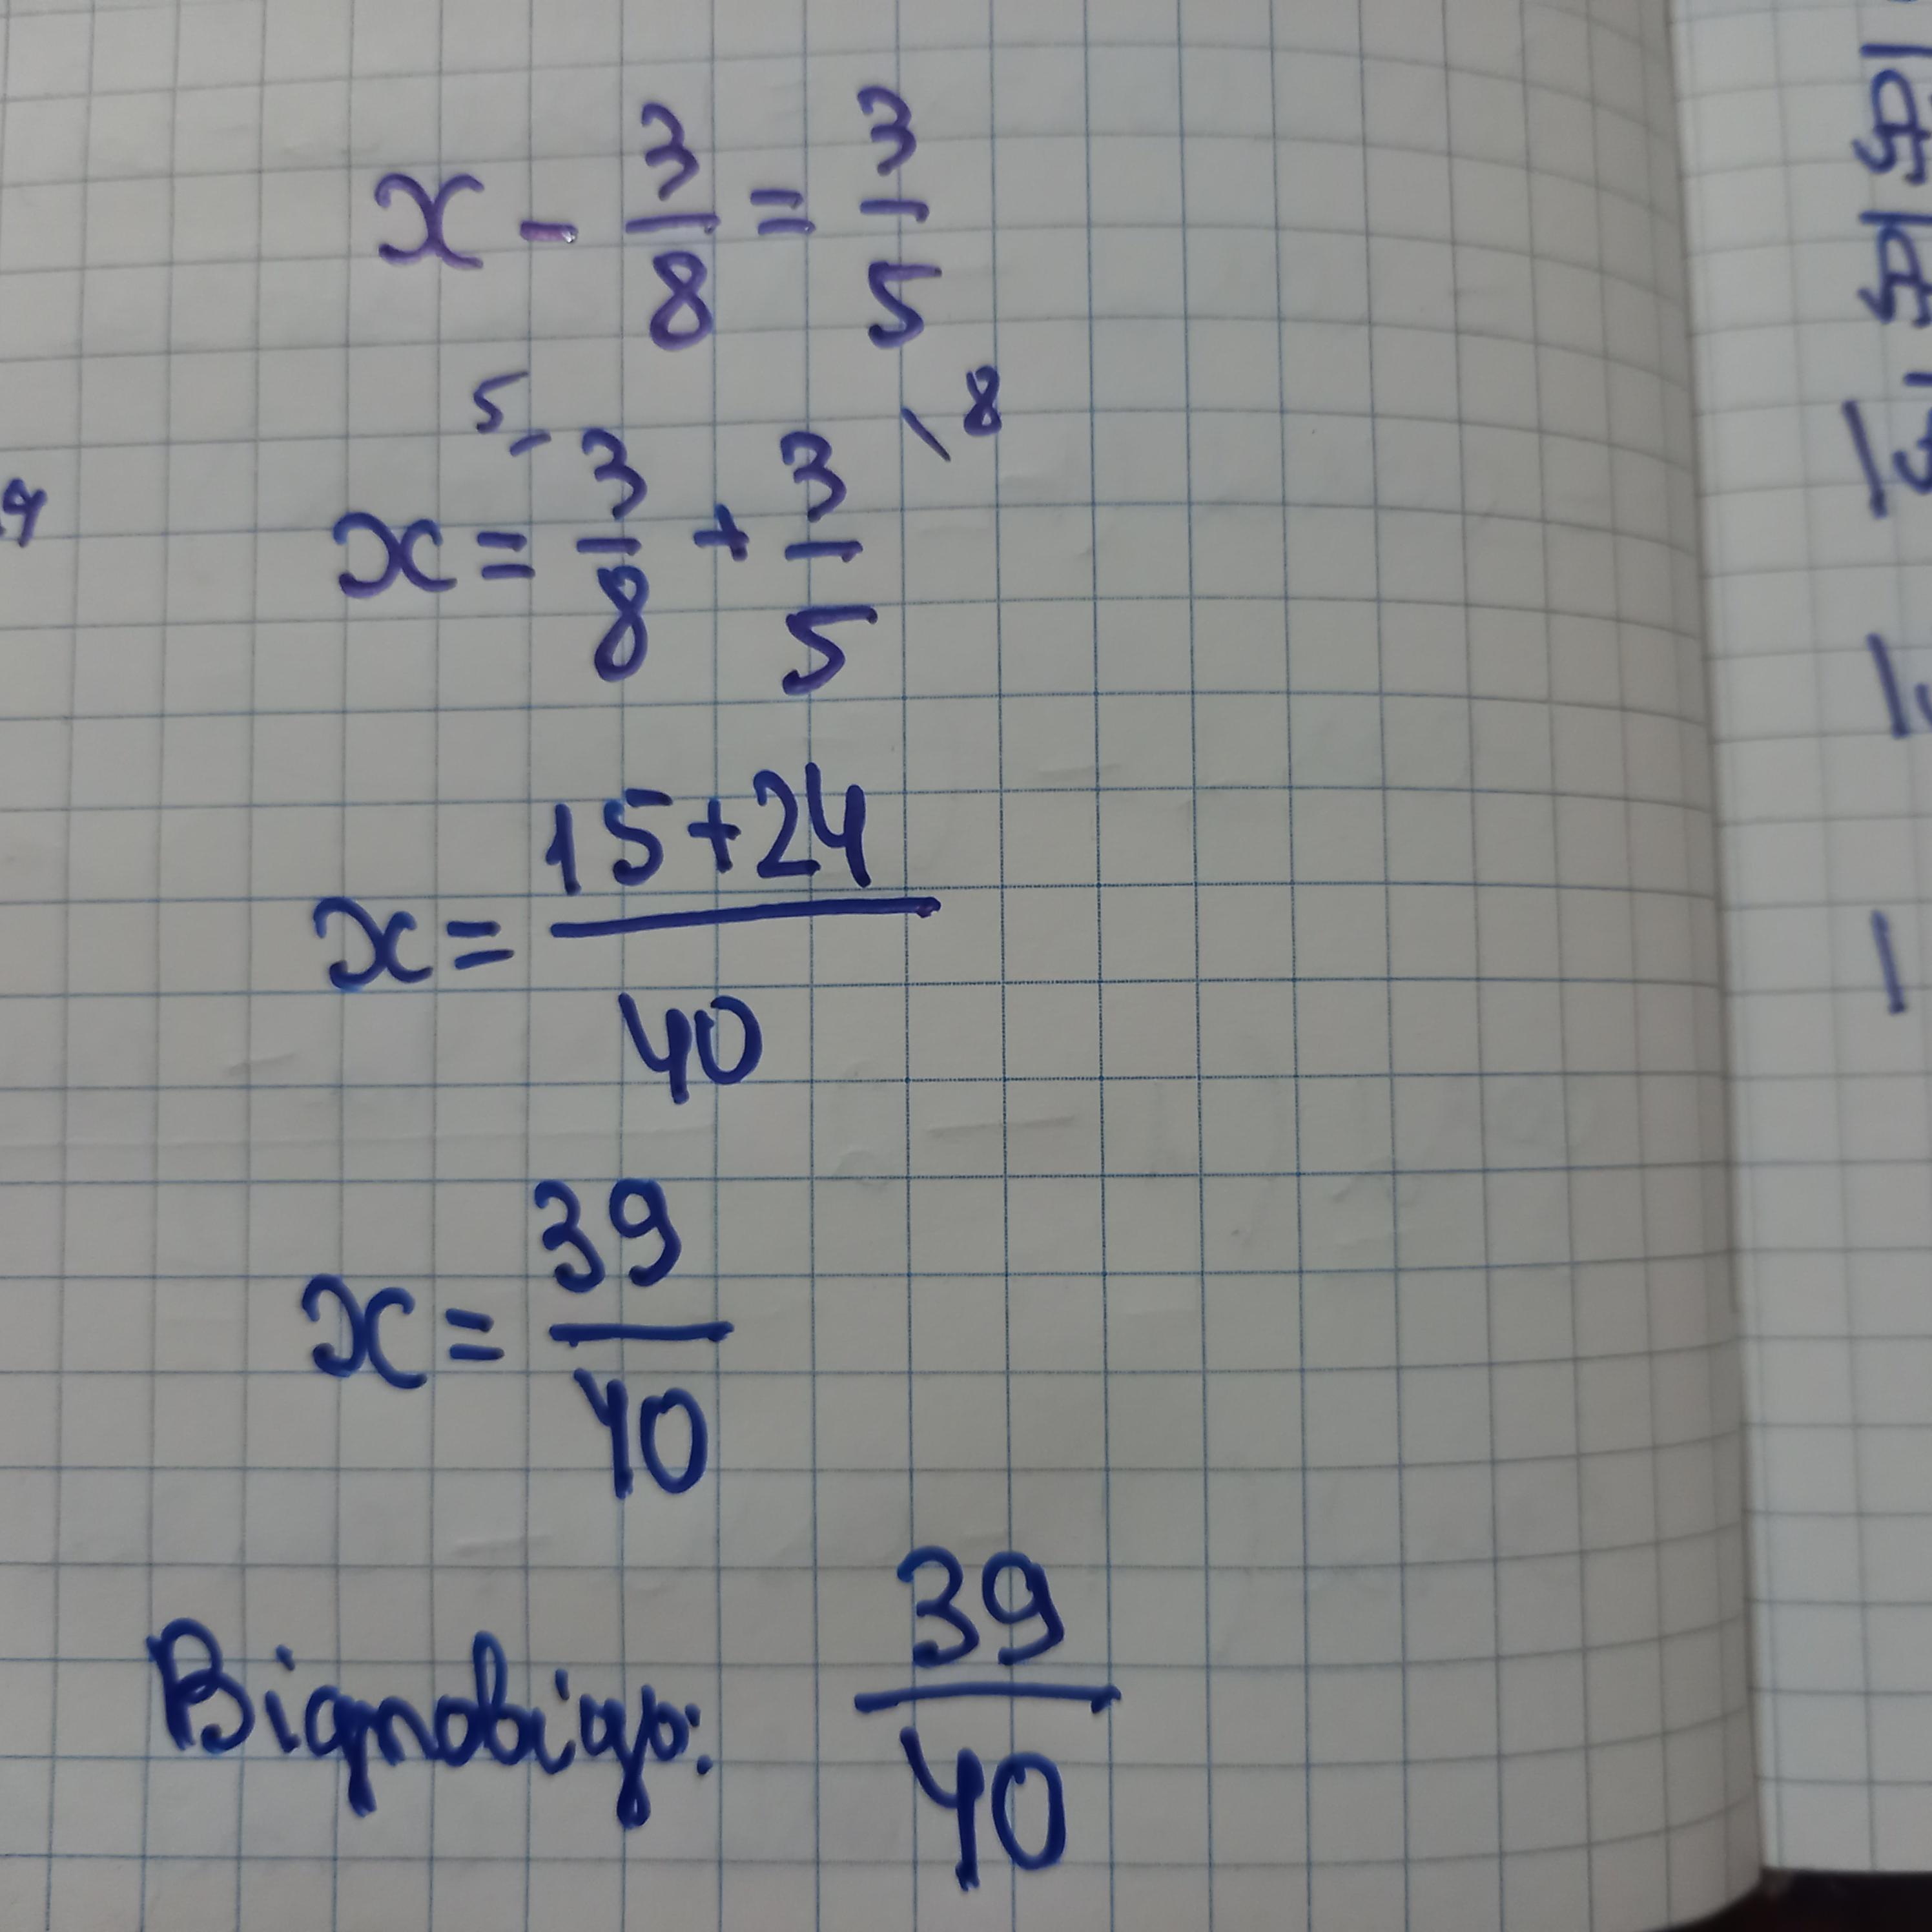 x - 3/8 = 3/5
5 8
x = 3/8 + 3/5
x = (15+24)/40
x = 39/40
Відповідь: 39/40